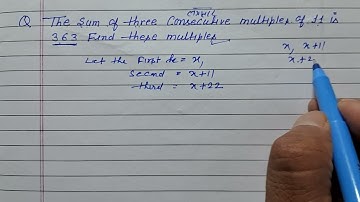 Q The Sum of three Consecutive multiples of 11 is
363 Find these multiples
Let the First be = x,
Second = x+11
third = x+22
x, x+11
x+2